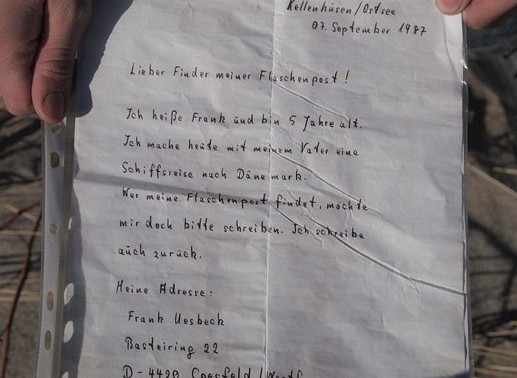 Kellenhüsen/Ostsee
07. September 1987
Lieber Finder meiner Flaschenpost!
Ich heiße Frank ünd bin 5 Jahre alt.
Ich mache heüte mit meinem Vater eine
Schiffsreise nach Dänemark.
Wer meine Flaschenpost findet, möchte
mir doch bitte schreiben. Ich schreibe
aüch zurück.
Meine Adresse:
Frank Uesbeck
Basteiring 22
D-4420 Coesfeld/Westf